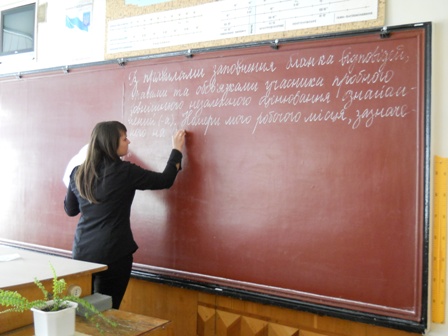 З правилами заповнення бланка відповідей,
правами та обов'язками учасника пробного
зовнішнього незалежного оцінювання ознайом-
лений (-а). Номери мого робочого місця, зазначе-
но на